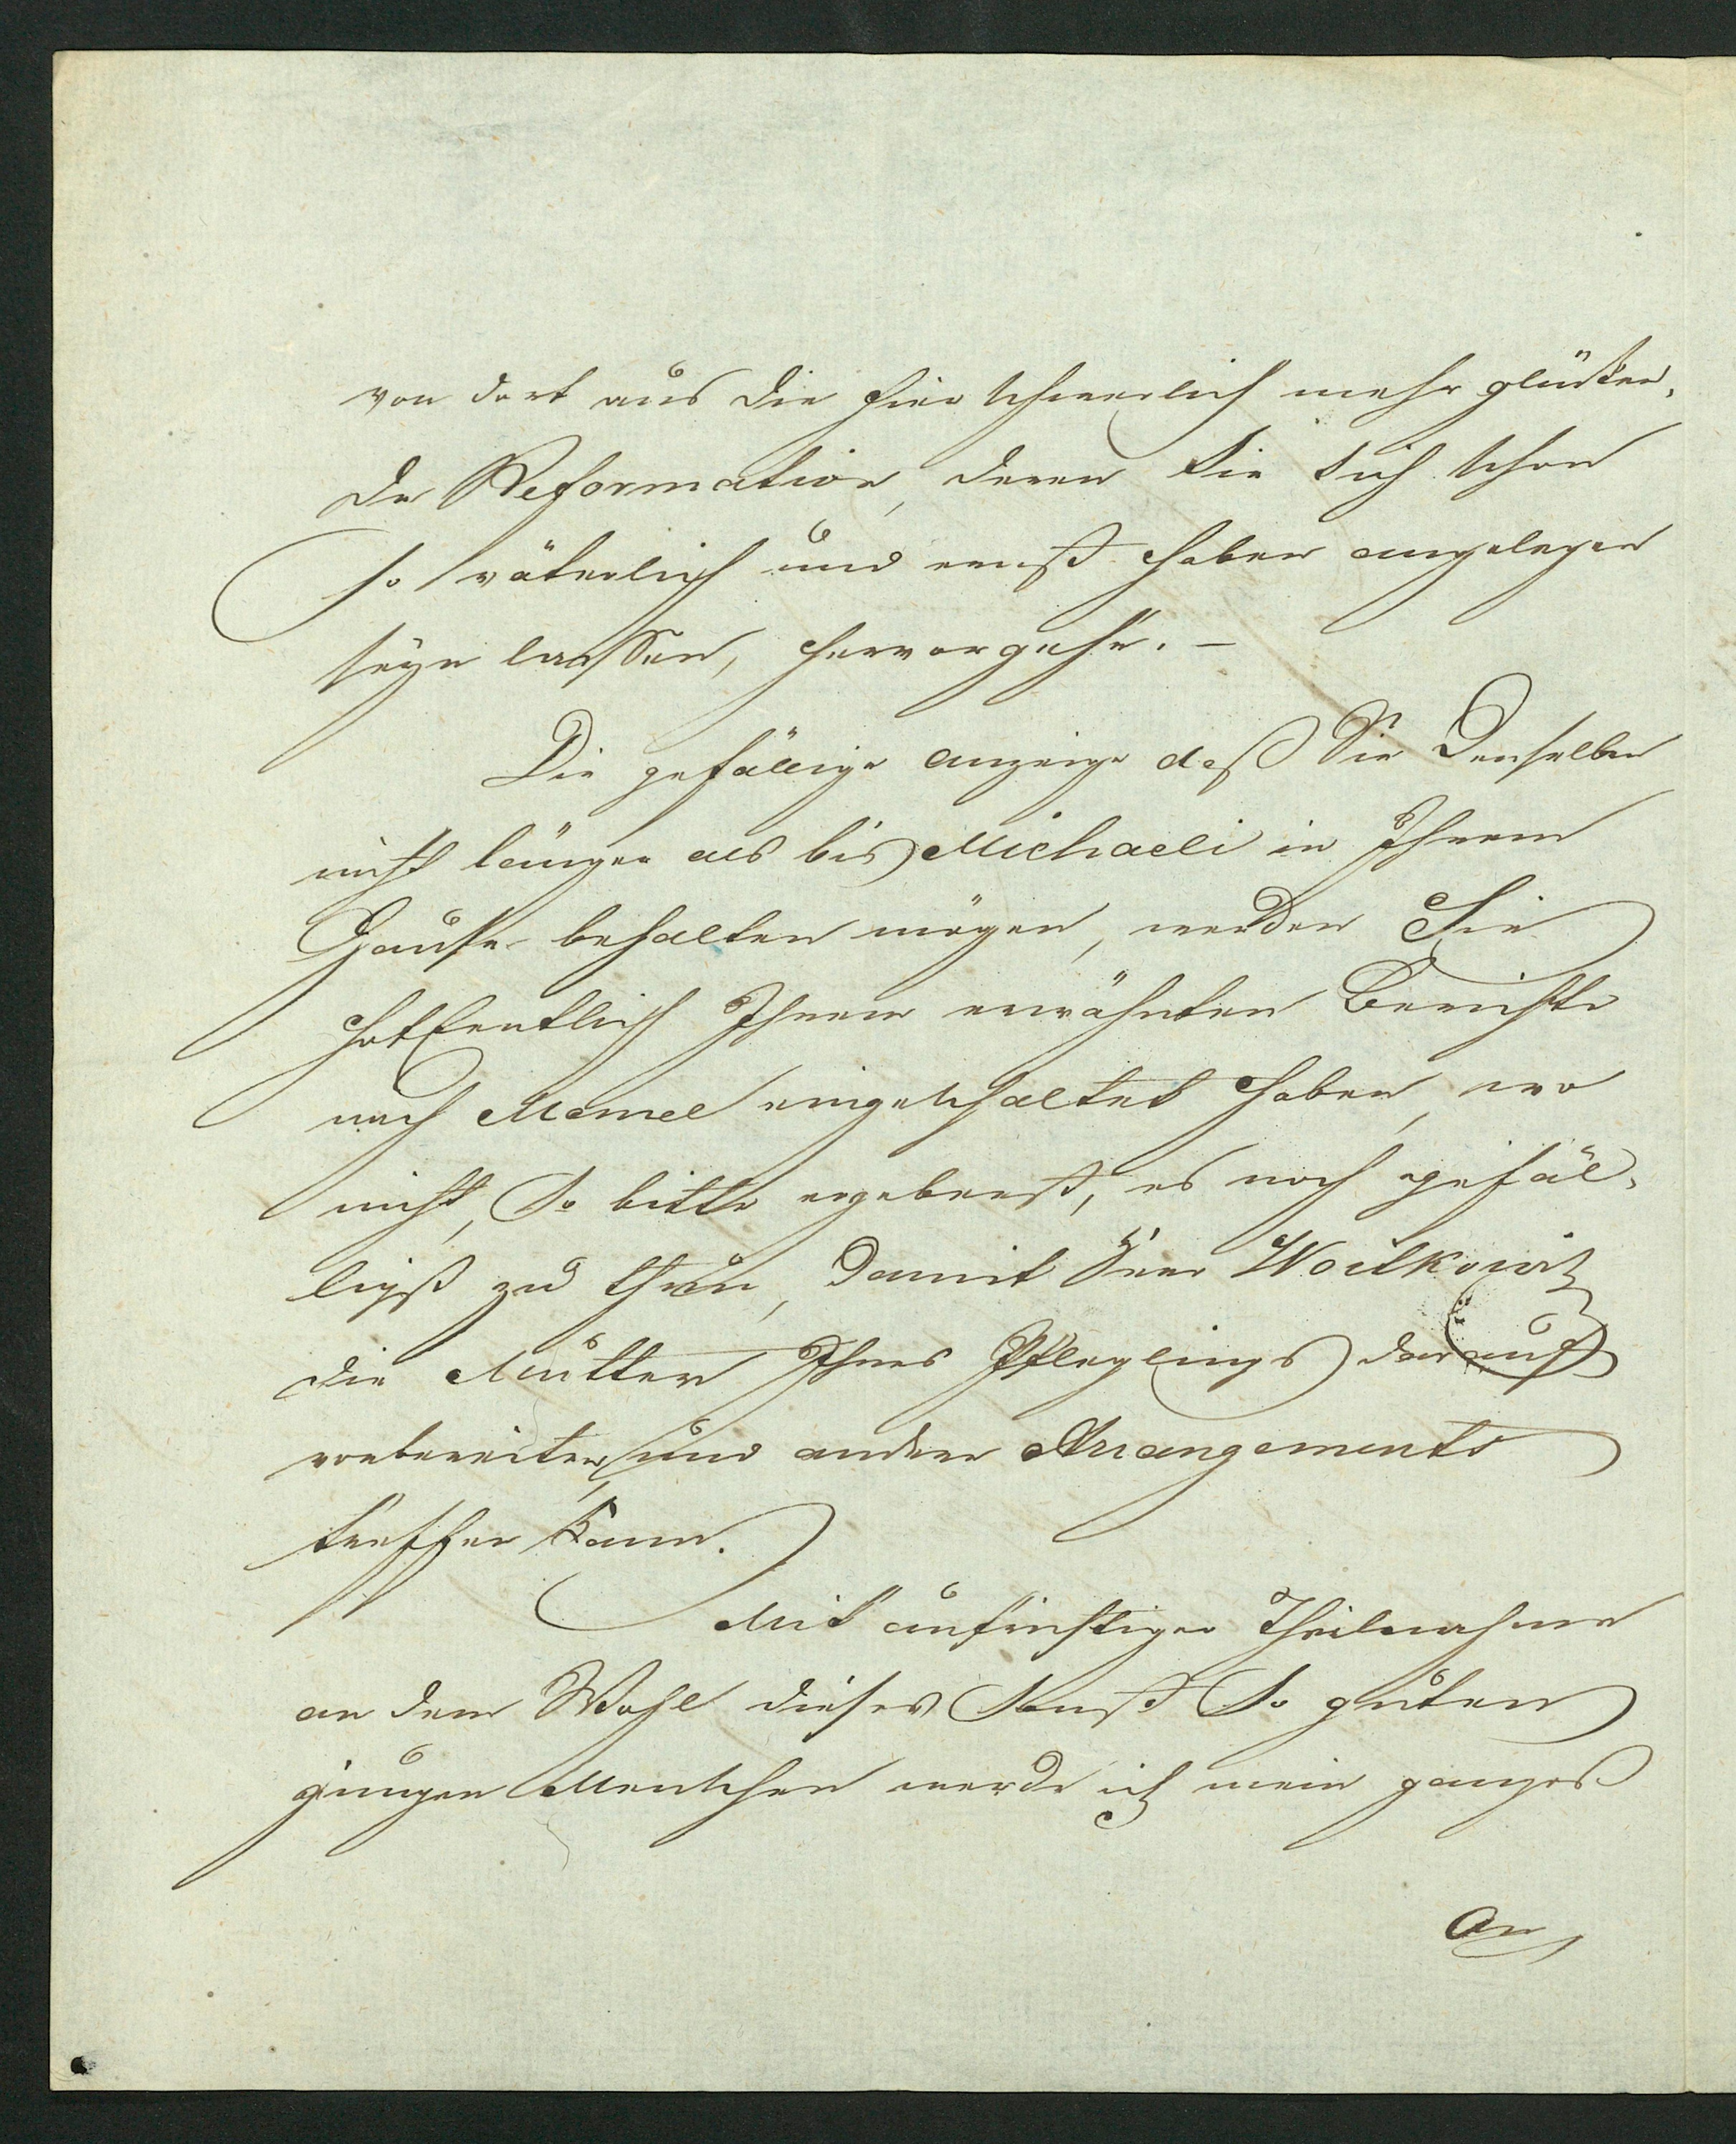 von dort aus die hier schwerlich mehr glücken-
de Reformation, deren Sie sich schon
so väterlich und ernst haben angelegen
seyn lassen, hervorgehe. –
Die gefällige anzeige daß Sie Denselben
nicht länger als bis Michaeli in Ihrem
Hause behalten mögen, werden Sie
hoffentlich Ihrem erwähnten Berichte
nach Memel eingeschaltet haben, wo
nicht, So bitte ergebenst, es noch gefäl-
ligst zu thun, damit Herr Woitkowitz
die Mutter Ihres Pfleglings darauf
vorbereiten, und andere Arrangements
treffen kann.
Mit aufrichtiger Theilnahme
an dem Wohl dieses Sonst So guten
jungen Menschen werde ich mein ganzes
An